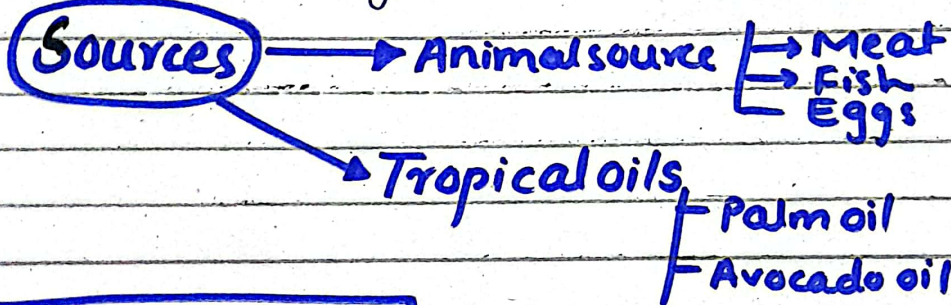 Sources → Animal source → Meat
→ Fish
Eggs
Tropical oils
Palm oil
Avocado oil